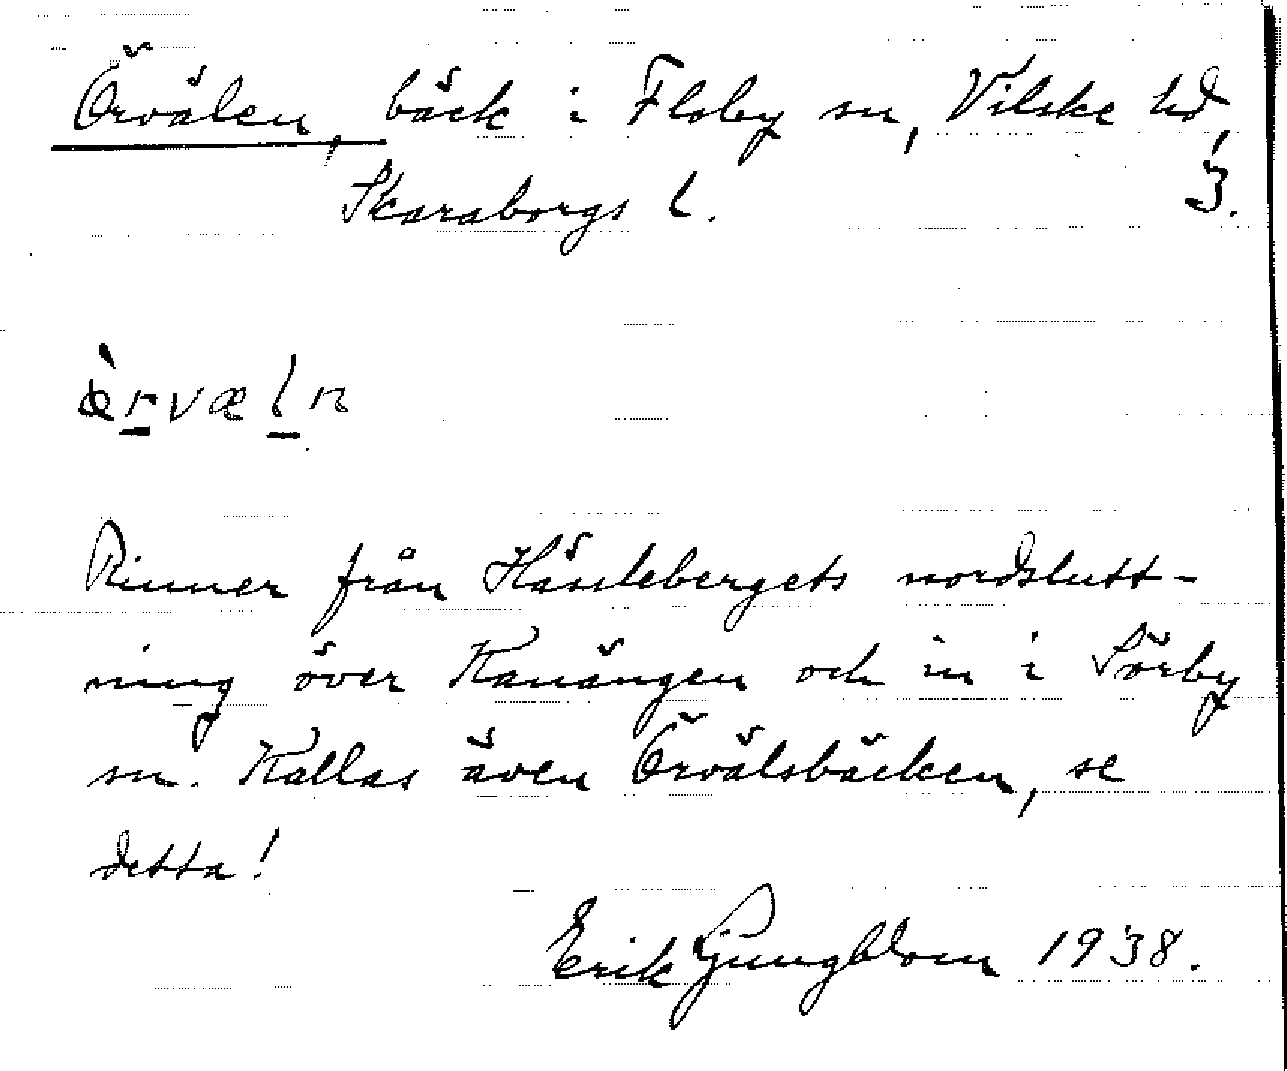 Örvälen, bäck i Floby sn, Vilske hd,
Skaraborgs l. 3.
ǿrvæln
Rinner från Hässlebergets nordslutt-
ning över Kanängen och in i Sörby
sn. Kallas även Örvälsbäcken, se
detta!
Erik Ljungblom 1938.